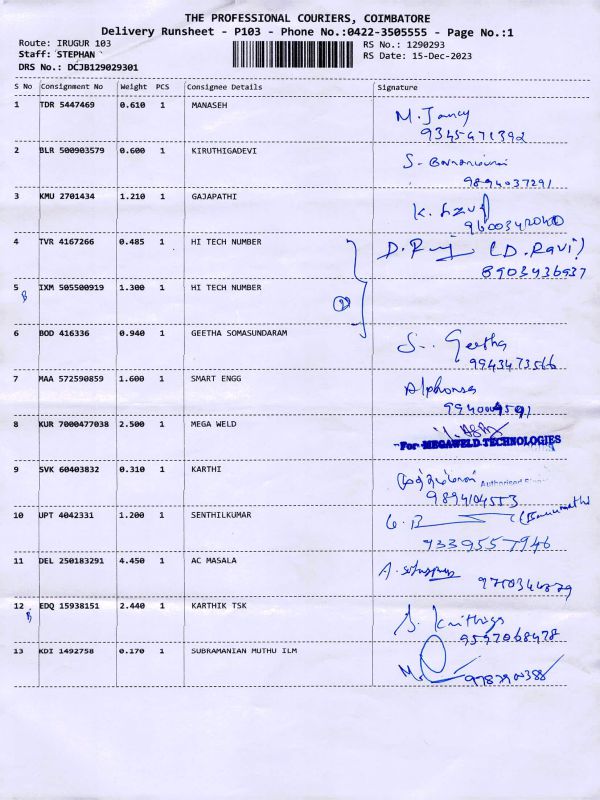 THE PROFESSIONAL COURIERS, COIMBATORE
Delivery Runsheet - P103 - Phone No.:0422-3505555 - Page No.:1
Route: IRUGUR 103 RS No.: 1290293
Staff: STEPHAN RS Date: 15-Dec-2023
DRS No.: DCJB129029301
S No Consignment No Weight PCS Consignee Details Signature
1 TDR 5447469 0.610 1 MANASEH
M. Jancy
9345471392
2 BLR 500903579 0.600 1 KIRUTHIGADEVI
S.
9894037291
3 KMU 2701434 1.210 1 GAJAPATHI
K.
4 TVR 4167266 0.485 1 HI TECH NUMBER D. (D. Ravi)
8903436937
5 IXM 505500919 1.300 1 HI TECH NUMBER
B
6 BOD 416336 0.940 1 GEETHA SOMASUNDARAM
S. Geetha
9943473566
7 MAA 572590859 1.600 1 SMART ENGG
Alphonsa
8 KUR 7000477038 2.500 1 MEGA WELD
For MEGAWELD TECHNOLOGIES
9 SVK 60403832 0.310 1 KARTHI
Authorised
9894104553
10 UPT 4042331 1.200 1 SENTHILKUMAR
9339557946
11 DEL 250183291 4.450 1 AC MASALA
A.
12 EDQ 15938151 2.440 1 KARTHIK TSK
B
S. Krithiga
9597068478
13 KDI 1492758 0.170 1 SUBRAMANIAN MUTHU ILM
M.